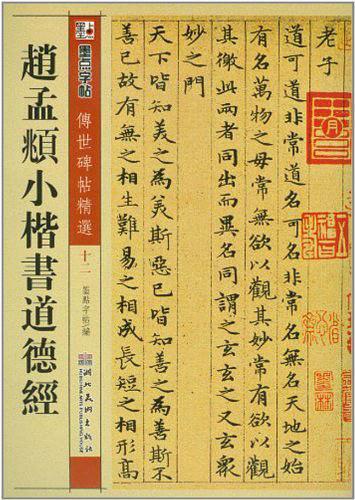 老子
道可道非常道名可名非常名無名天地之始
有名萬物之母常無欲以觀其妙常有欲以觀
其徼此兩者同出而異名同謂之玄玄之又玄衆
妙之門
天下皆知美之為美斯惡已皆知善之為善斯不
善已故有無之相生難易之相成長短之相形高
墨点
墨点字帖
傳世碑帖精選
十二
墨點字帖/編
湖北美術出版社
HUBEI FINE ARTS PUBLISHING HOUSE
趙孟頫小楷書道德經